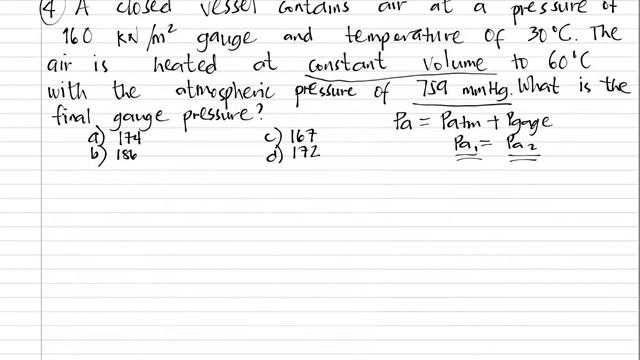 ④ A closed vessel contains air at a pressure of
160 kN/m² gauge and temperature of 30°C. The
air is heated at constant volume to 60°C
with the atmospheric pressure of 759 mmHg. What is the
final gauge pressure?
Pa = Patm + Pgage
a) 174 c) 167 Pa₁ = Pa₂
b) 186 d) 172